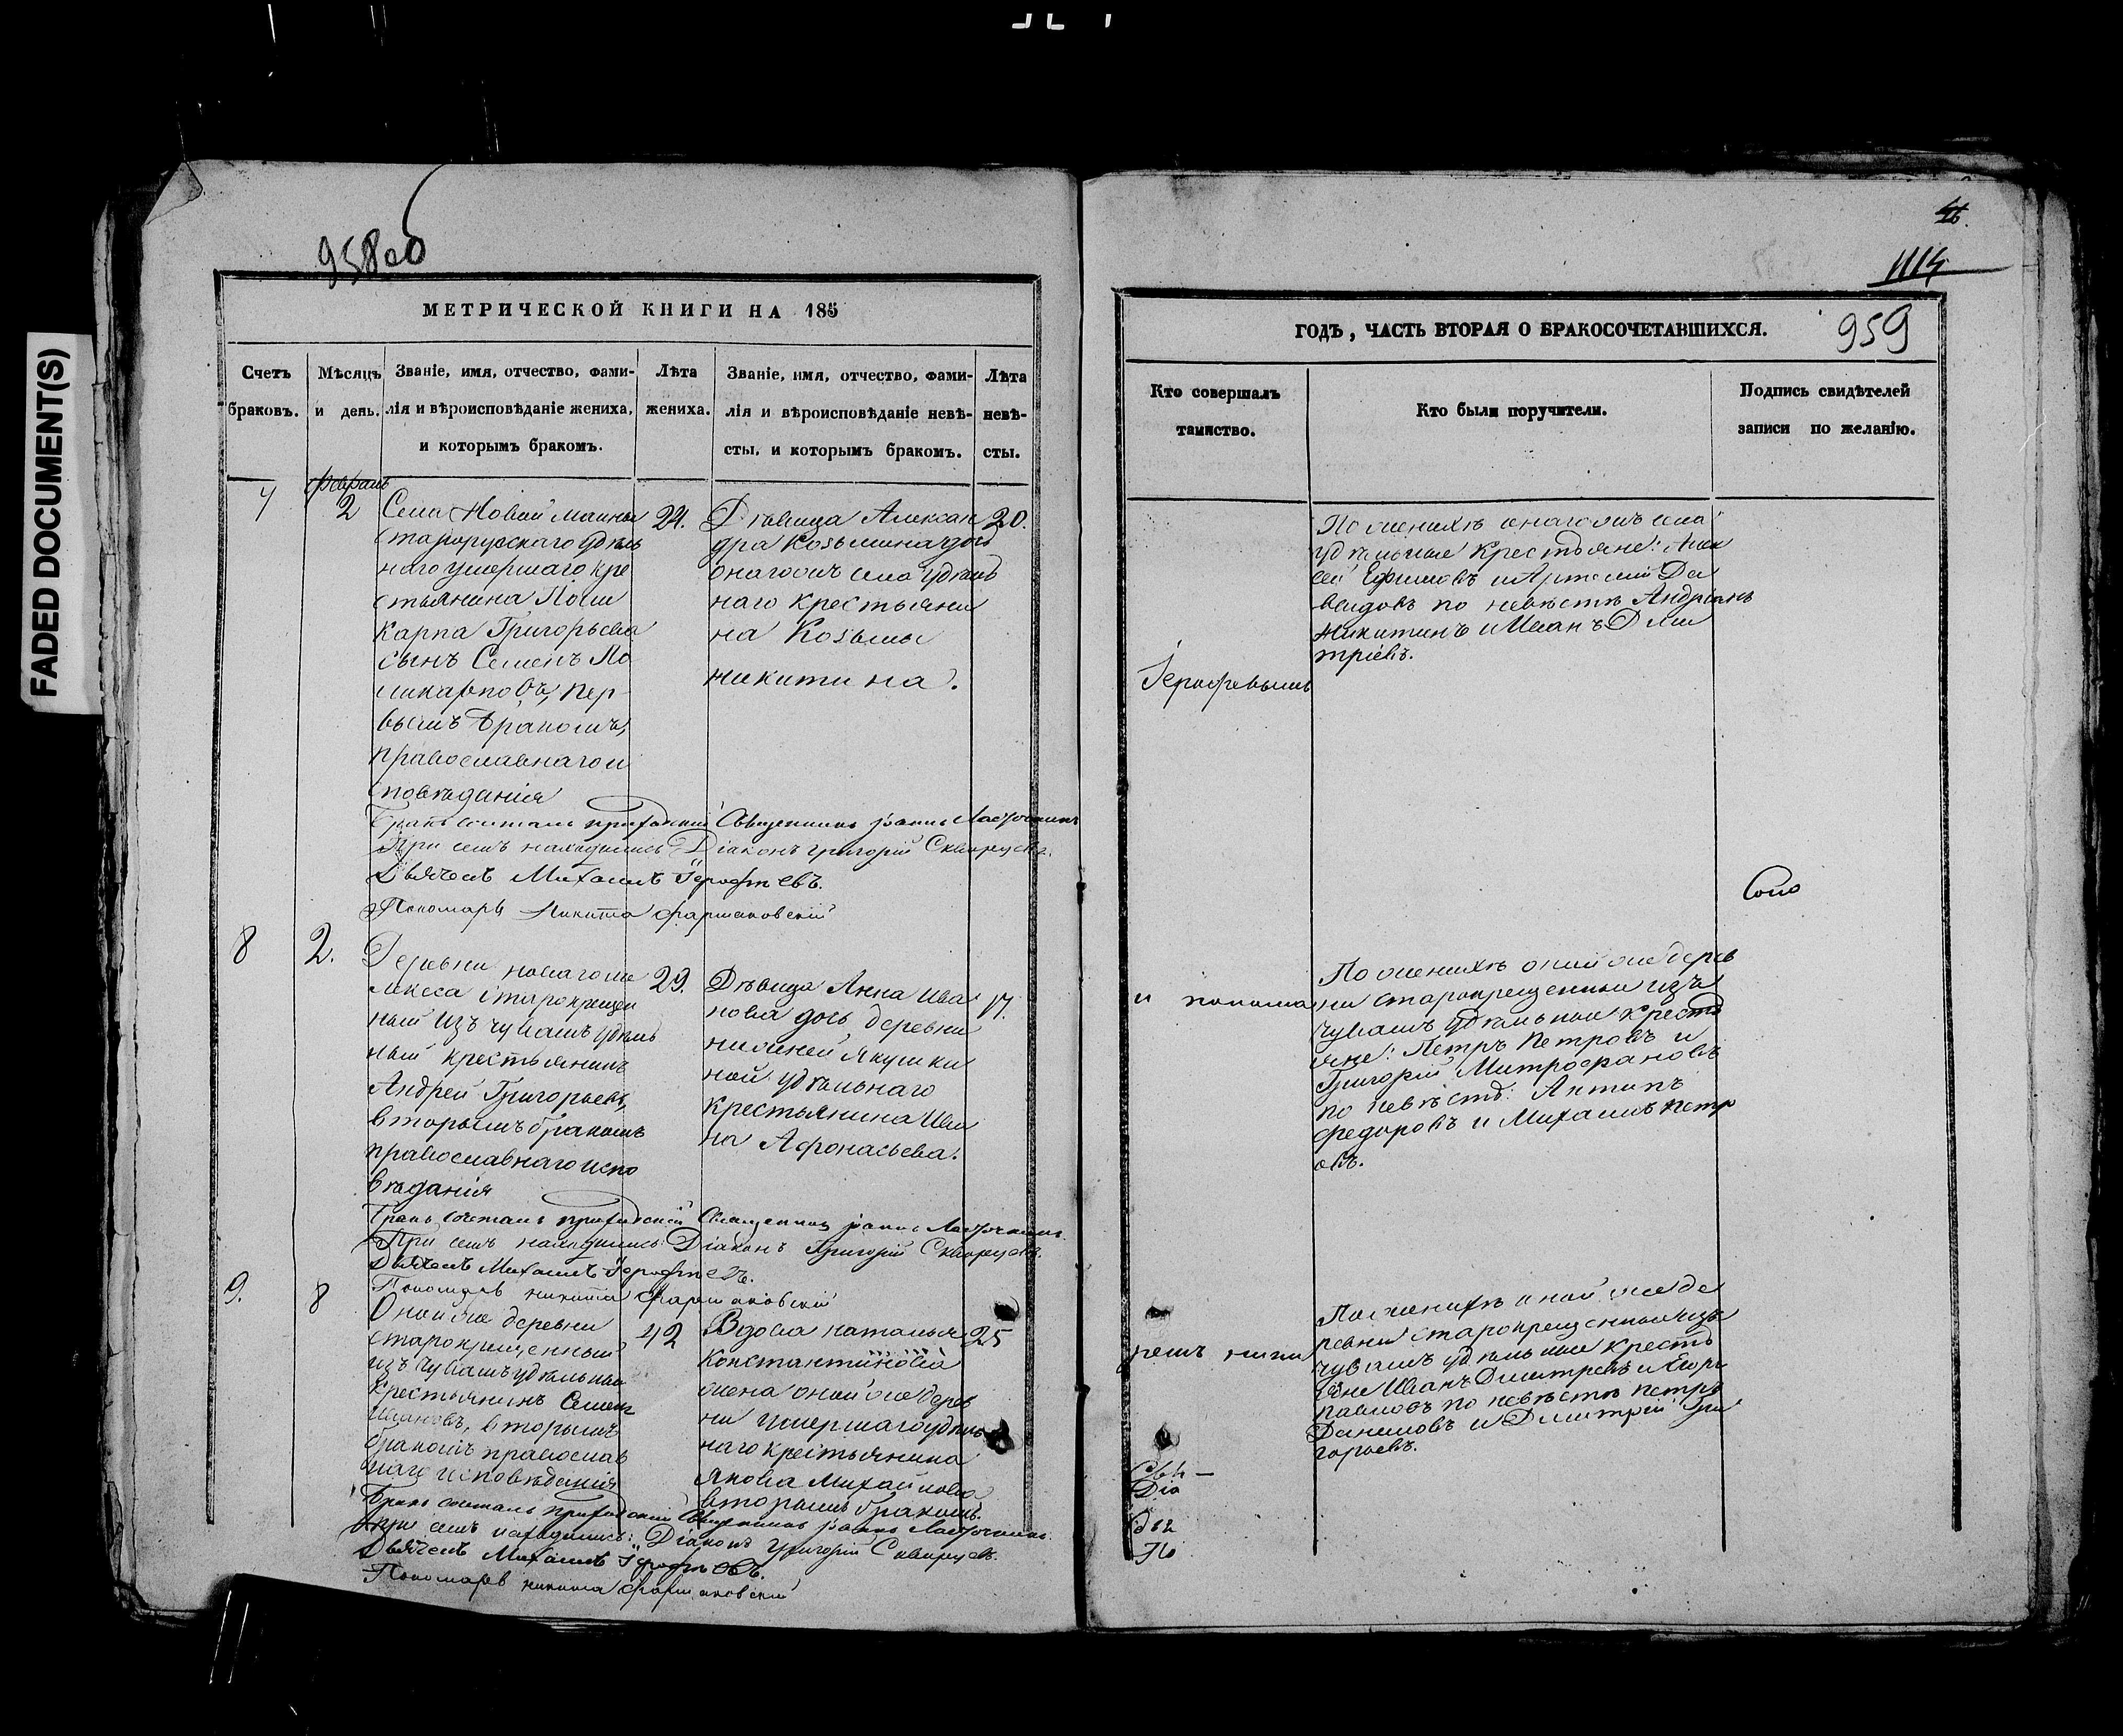 FADED DOCUMENT(S)
958 об
МЕТРИЧЕСКОЙ КНИГИ НА 185
Счетъ браковъ.
Мѣсяцъ и день.
Званіе, имя, отчество, фами-
лія и вѣроисповѣданіе жениха,
и которымъ бракомъ.
Лѣта жениха.
Званіе, имя, отчество, фами-
лія и вѣроисповѣданіе невѣ-
сты, и которымъ бракомъ.
Лѣта невѣ-
сты.
7
февраль
2
Села Новой Майны
старорусскаго удѣль
наго умершаго кре
стьянина Поли
карпа Григорьева
сынъ Семенъ По
ликарповъ, пер
вымъ бракомъ,
православнаго и
сповѣданія
24.
Дѣвица Алексан
дра Козьмина дочь
онагожъ села удѣль
наго крестьяни
на Козьмы
Никитина.
20.
Бракъ вѣнчалъ приходскій Священникъ Іоаннъ Ласточкинъ
При семъ находились Діаконъ Григорій Скворцовъ.
Дьячекъ Михаилъ Іерофѣевъ.
Пономарь Никита Фармаковскій
8
2.
Деревни
старокрещен
ный изъ чувашъ удѣль
ный крестьянинъ
Андрей Григорьевъ,
вторымъ бракомъ
православнаго испо
вѣданія
29.
Дѣвица Анна Ива
нова дочь деревни
нижней Якушки
ной удѣльнаго
крестьянина Ива
на Афонасьева.
17.
Бракъ вѣнчалъ приходскій Священникъ Іоаннъ Ласточкинъ.
При семъ находились: Діаконъ Григорій Скворцовъ.
Дьячекъ Михаилъ Іерофѣевъ.
Пономарь Никита Фармаковскій
9.
8
Оной же деревни
старокрещенный
изъ чувашъ удѣльный
крестьянинъ Семенъ
Ивановъ, вторымъ
бракомъ православ
наго исповѣданія
42
Вдова Наталья
Константинова
жена оной же дерев
ни умершаго удѣль
наго крестьянина
Якова Михайлова
вторымъ бракомъ.
25
Бракъ вѣнчалъ приходскій Священникъ Іоаннъ Ласточкинъ.
При семъ находились: Діаконъ Григорій Скворцовъ.
Дьячекъ Михаилъ Іерофѣевъ.
Пономарь Никита Фармаковскій
1114
959
ГОДЪ, ЧАСТЬ ВТОРАЯ О БРАКОСОЧЕТАВШИХСЯ.
Кто совершалъ
таинство.
Кто были поручители.
Подпись свидѣтелей
записи по желанію.
По женихѣ онагожъ села
удѣльные крестьяне: Алек
сей Ефимовъ и Артемій Да
выдовъ по невѣстѣ Андреянъ
Никитинъ и Иванъ Дми
тріевъ.
По женихѣ оной же дерев
ни старокрещенные изъ
чувашъ удѣльные кресть
яне: Петръ Петровъ и
Григорій Митрофановъ
по невѣстѣ: Антипъ
Федоровъ и Михаилъ Петр
овъ.
По женихѣ оной же де
ревни старокрещенные изъ
чувашъ удѣльные кресть
яне Иванъ Дмитревъ и Егоръ
Павловъ по невѣстѣ Петръ
Даниловъ и Дмитрей Гри
горьевъ.
Діа
По